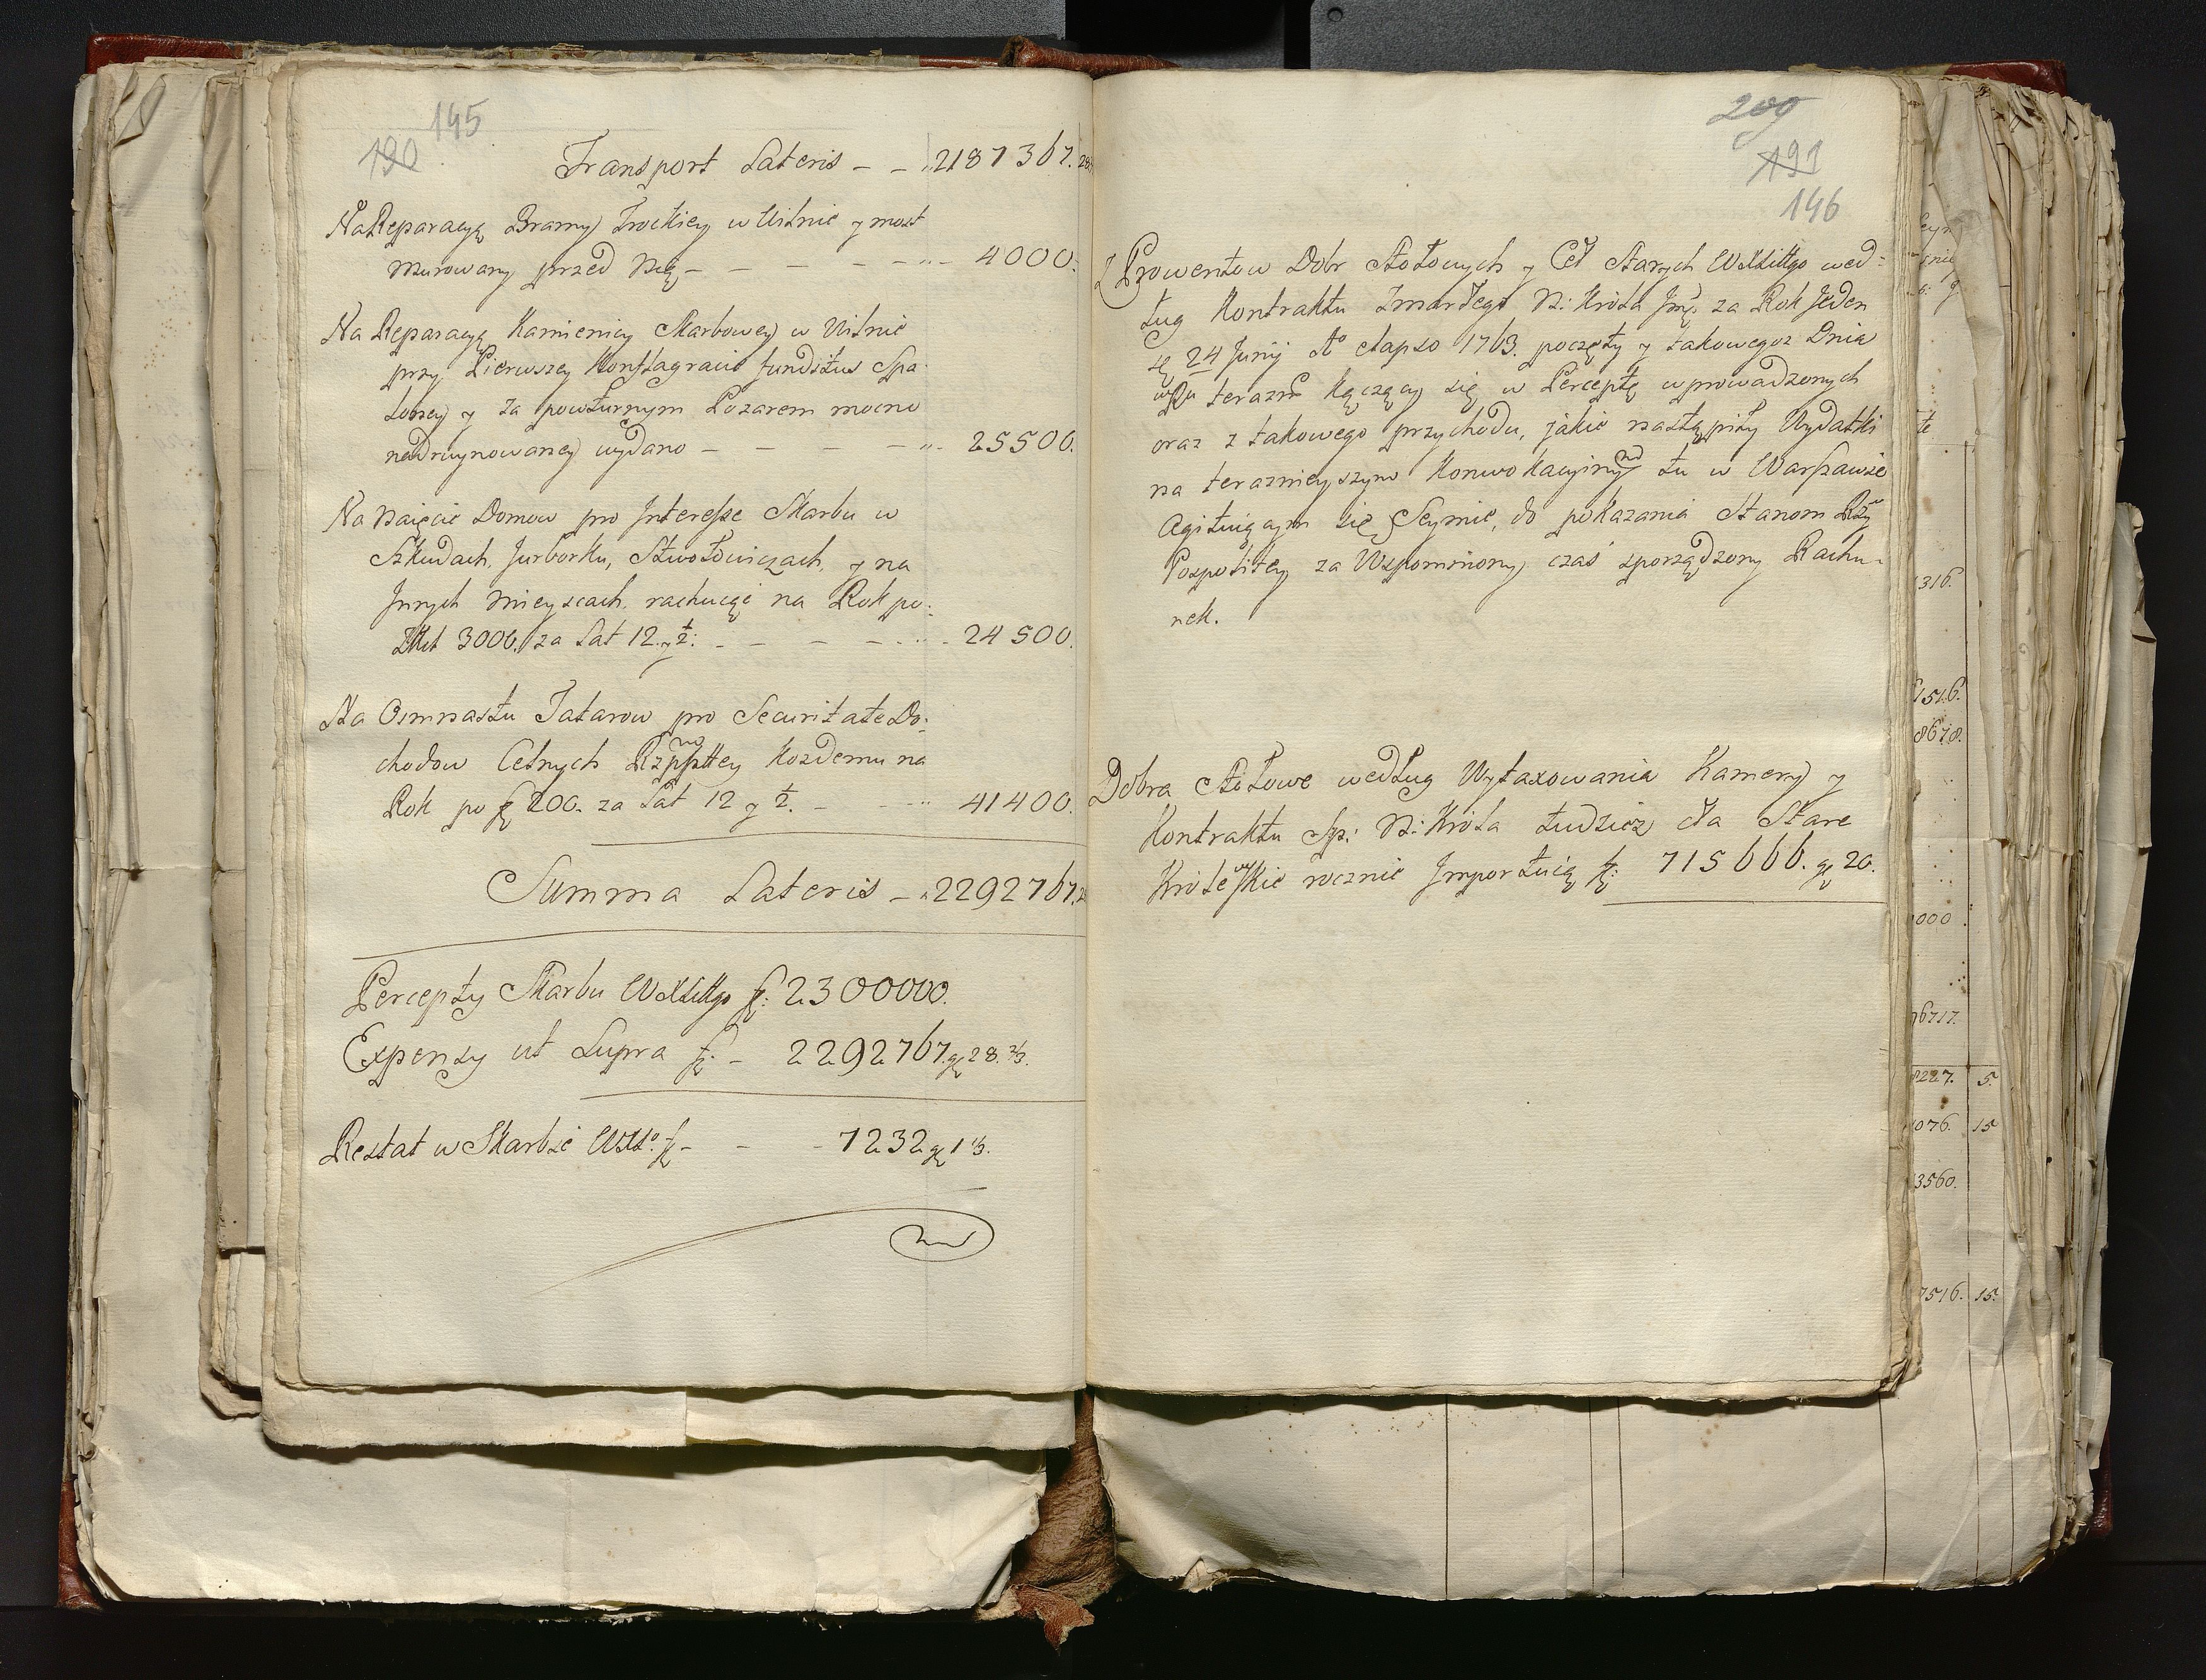 145
190
Transport Lateris - - 2187367. 28
Na Reparacyą Bramy Trockiey w Wilnie y most
murowany przed Nią - - - - - 4000.
Na Reparacyą Kamienicy Skarbowey w Wilnie
przy Pierwszey Konflagracie funditus Spa-
loney y za powturnym Pozarem mocno
nadruynowaney wydano - - - - 25500.
Na Naięcie Domow pro Interesse Skarbu w
Szkudach, Jurborku, Stwołowiczach, y na
Jnnych mieyscach, rachuiąc na Rok po:
2000. za Lat 12. y ½: - - - - 24500.
Na Osmnastu Tatarow pro Securitate Do:
chodow Celnych Rzppttey kozdemu na
Rok po 200. za Lat 12 y ½. - - 41400.
Summa Lateris - 2292767.
Percepty Skarbu WXLittgo f: 2300000.
Expensy ut Supra f: - 2292767. gr 28. ⅔.
Restat w Skarbie f - - - 7232 gr 1 ⅓.
209
191
146
Z Prowentow Dobr Stołowych y Ceł Starych WXLittgo wed:
ług Kontraktu Zmarłego N: Krola Jmć. za Rok Jeden
24 Junij Aº elapso 1763. poczęty y takowegoz Dnia
kączący się w Perceptę wprowadzonych
oraz z takowego przychodu, jakie nastąpiły Wydatki
na teraznieyszym Konwokacyinym tu w Warszawie
Agituiącym się Seymie, do pokazania Stanom Rzy
Pospolitey za Wspomniony czas sporządzony Rachu-
nek.
Dobra Stołowe według Wytaxowania Kamery y
Kontraktu Sp: N: Krola tudziez cła Stare
Krolewskie rocznie Importuią f: 715666. gr 20.
316.
1516.
8678.
000
6717.
8227. 5.
076. 15
3560.
7516. 15.